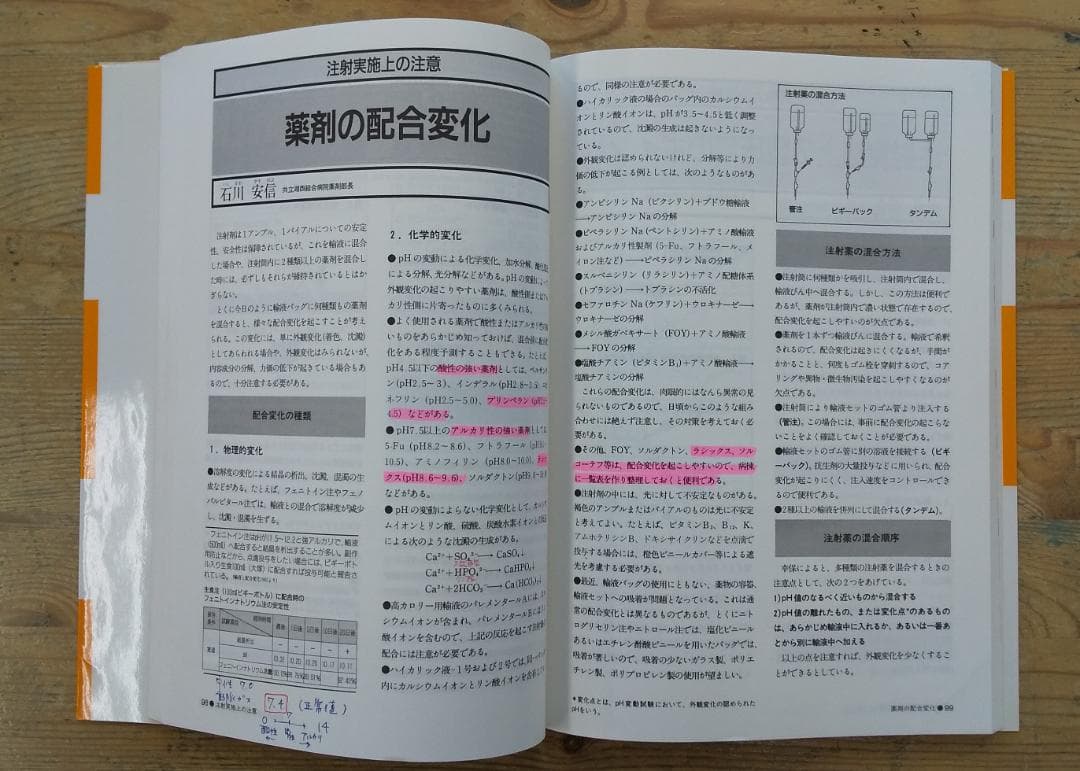 注射実施上の注意
薬剤の配合変化
石川 安信 共立湖西総合病院薬剤部長
注射剤は1アンプル、1バイアルについての安定
性、安全性は保障されているが、これを輸液に混合
した場合や、注射筒内に2種類以上の薬剤を混合し
た時には、必ずしもそれらが維持されているとはか
ぎらない。
とくに今日のように輸液バッグに何種類もの薬剤
を混合すると、様々な配合変化を起こすことが考え
られる。この変化には、単に外観変化(着色、沈澱)
としてあらわれる場合や、外観変化はみられないが、
内容成分の分解、力価の低下が起きている場合もあ
るので、十分注意する必要がある。
配合変化の種類
1．物理的変化
●溶解度の変化による結晶の析出、沈澱、混濁の生
成などがある。たとえば、フェニトイン注やフェノ
バルビタール注では、輸液との混合で溶解度が減少
し、沈澱・混濁を生ずる。
フェニトイン注はpHが11.5〜12.2と強アルカリで、輸液
(500ml)へ配合すると結晶を析出することが多い。副作
用防止などから、点滴投与をしたい場合には、ピギーボト
ル入り生食100ml(大塚)に配合すれば投与可能と報告さ
れている。
生食注(100mlピギーボトル)に配合時の
フェニトインナトリウム注の安定性
7.4 (正常値)
0 7 14
酸性 中性 アルカリ
98●注射実施上の注意
2．化学的変化
●pHの変動による化学変化、加水分解、酸化還元
による分解、光分解などがある。pHの変動によって
外観変化の起こりやすい薬剤は、酸性側またはアル
カリ性側に片寄ったものに多くみられる。
●よく使用される薬剤で酸性またはアルカリ性の強
いものをあらかじめ知っておけば、混合前に配合変
化をある程度予測することもできる。たとえば、
pH4.5以下の酸性の強い薬剤としては、
(pH2.5〜3)、インデラル(pH2.8〜3.5)、
ネフリン(pH2.5〜5.0)、プリンペラン(pH2.5〜
4.5)などがある。
●pH7.5以上のアルカリ性の強い薬剤としては、
5-Fu(pH8.2〜8.6)、フトラフール(pH
10.5)、アミノフィリン(pH8.0〜10.0)、
クス(pH8.6〜9.6)、ソルダクトン
などがある。
●pHの変動によらない化学変化として、カルシウ
ムイオンとリン酸、硫酸、炭酸水素イオンとの反応
による次のような沈澱の生成がある。
Ca²⁺+SO₄²⁻→CaSO₄↓
Ca²⁺+HPO₄²⁻→CaHPO₄↓
Ca²⁺+2HCO₃⁻→Ca(HCO₃)₂↓
●高カロリー用輸液のパレメンタールAには、カル
シウムイオンが含まれ、パレメンタールBにはリン
酸イオンを含むので、上記の反応を起こす薬剤との
配合には注意が必要である。
●ハイカリック液-1号および2号では、同一バッグ
内にカルシウムイオンとリン酸イオンを含有す
るので、同様の注意が必要である。
●ハイカリック液の場合のバッグ内のカルシウムイ
オンとリン酸イオンは、pHが3.5〜4.5と低く調整
されているので、沈澱の生成は起きないようになっ
ている。
●外観変化は認められないけれど、分解等により力
価の低下が起こる例としては、次のようなものがあ
る。
●アンピシリンNa(ビクシリン)+ブドウ糖輸液
→アンピシリンNaの分解
●ピペラシリンNa(ペントシリン)+アミノ酸輸液
およびアルカリ性製剤(5-Fu、フトラフール、メ
イロン注など)→ピペラシリンNaの分解
●スルベニシリン(リラシリン)+アミノ配糖体系
(トブラシン)→トブラシンの不活化
●セファロチンNa(ケフリン)+ウロキナーゼ→
ウロキナーゼの分解
●メシル酸ガベキサート(FOY)+アミノ酸輸液
→FOYの分解
●塩酸チアミン(ビタミンB₁)+アミノ酸輸液→
塩酸チアミンの分解
これらの配合変化は、肉眼的にはなんら異常の見
られないものであるので、日頃からこのような組み
合わせには絶えず注意し、その対策を考えておく必
要がある。
●その他、FOY、ソルダクトン、ラシックス、ソル
コーテフ等は、配合変化を起こしやすいので、病棟
に一覧表を作り整理しておくと便利である。
●注射剤の中には、光に対して不安定なものがある。
褐色のアンプルまたはバイアルのものは光に不安定
と考えてよい。たとえば、ビタミンB₂、B₁₂、K、
アムホテリシンB、ドキシサイクリンなどを点滴で
投与する場合には、橙色ビニールカバー等による遮
光を考慮する必要がある。
●最近、輸液バッグの使用にともない、薬物の容器、
輸液セットへの吸着が問題となっている。これは通
常の配合変化とは異なるものであるが、とくにニト
ログリセリン注やニトロール注では、塩化ビニール
あるいはエチレン酢酸ビニールを用いたバッグでは、
吸着が著しいので、吸着の少ないガラス製、ポリエ
チレン製、ポリプロピレン製の使用が望ましい。
注射薬の混合方法
管注 ピギーバック タンデム
注射薬の混合方法
●注射筒に何種類かを吸引し、注射筒内で混合し、
輸液びん中へ混合する。しかし、この方法は便利で
あるが、薬剤が注射筒内で濃い状態で存在するので、
配合変化を起こしやすいのが欠点である。
●薬剤を1本ずつ輸液びんに混合する。輸液で希釈
されるので、配合変化は起きにくくなるが、手間が
かかることと、何度もゴム栓を穿刺するので、コア
リングや異物・微生物汚染を起こしやすくなるのが
欠点である。
●注射筒により輸液セットのゴム管より注入する
(管注)。この場合には、事前に配合変化の起こらな
いことをよく確認しておくことが必要である。
●輸液セットのゴム管に別の溶液を接続する(ピギ
ーバック)。抗生剤の大量投与などに用いられ、配合
変化が起こりにくく、注入速度をコントロールでき
るので便利である。
●2種以上の輸液を並列にて混合する(タンデム)。
注射薬の混合順序
幸保によると、多種類の注射薬を混合するときの
注意点として、次の2つをあげている。
1)pH値のなるべく近いものから混合する
2)pH値の離れたもの、または変化点*のあるもの
は、あらかじめ輸液中に入れるか、あるいは一番あ
とから別に輸液中へ加える
以上の点を注意すれば、外観変化を少なくするこ
とができるとしている。
*変化点とは、pH変動試験において、外観変化の認められた
pHをいう。
薬剤の配合変化●99